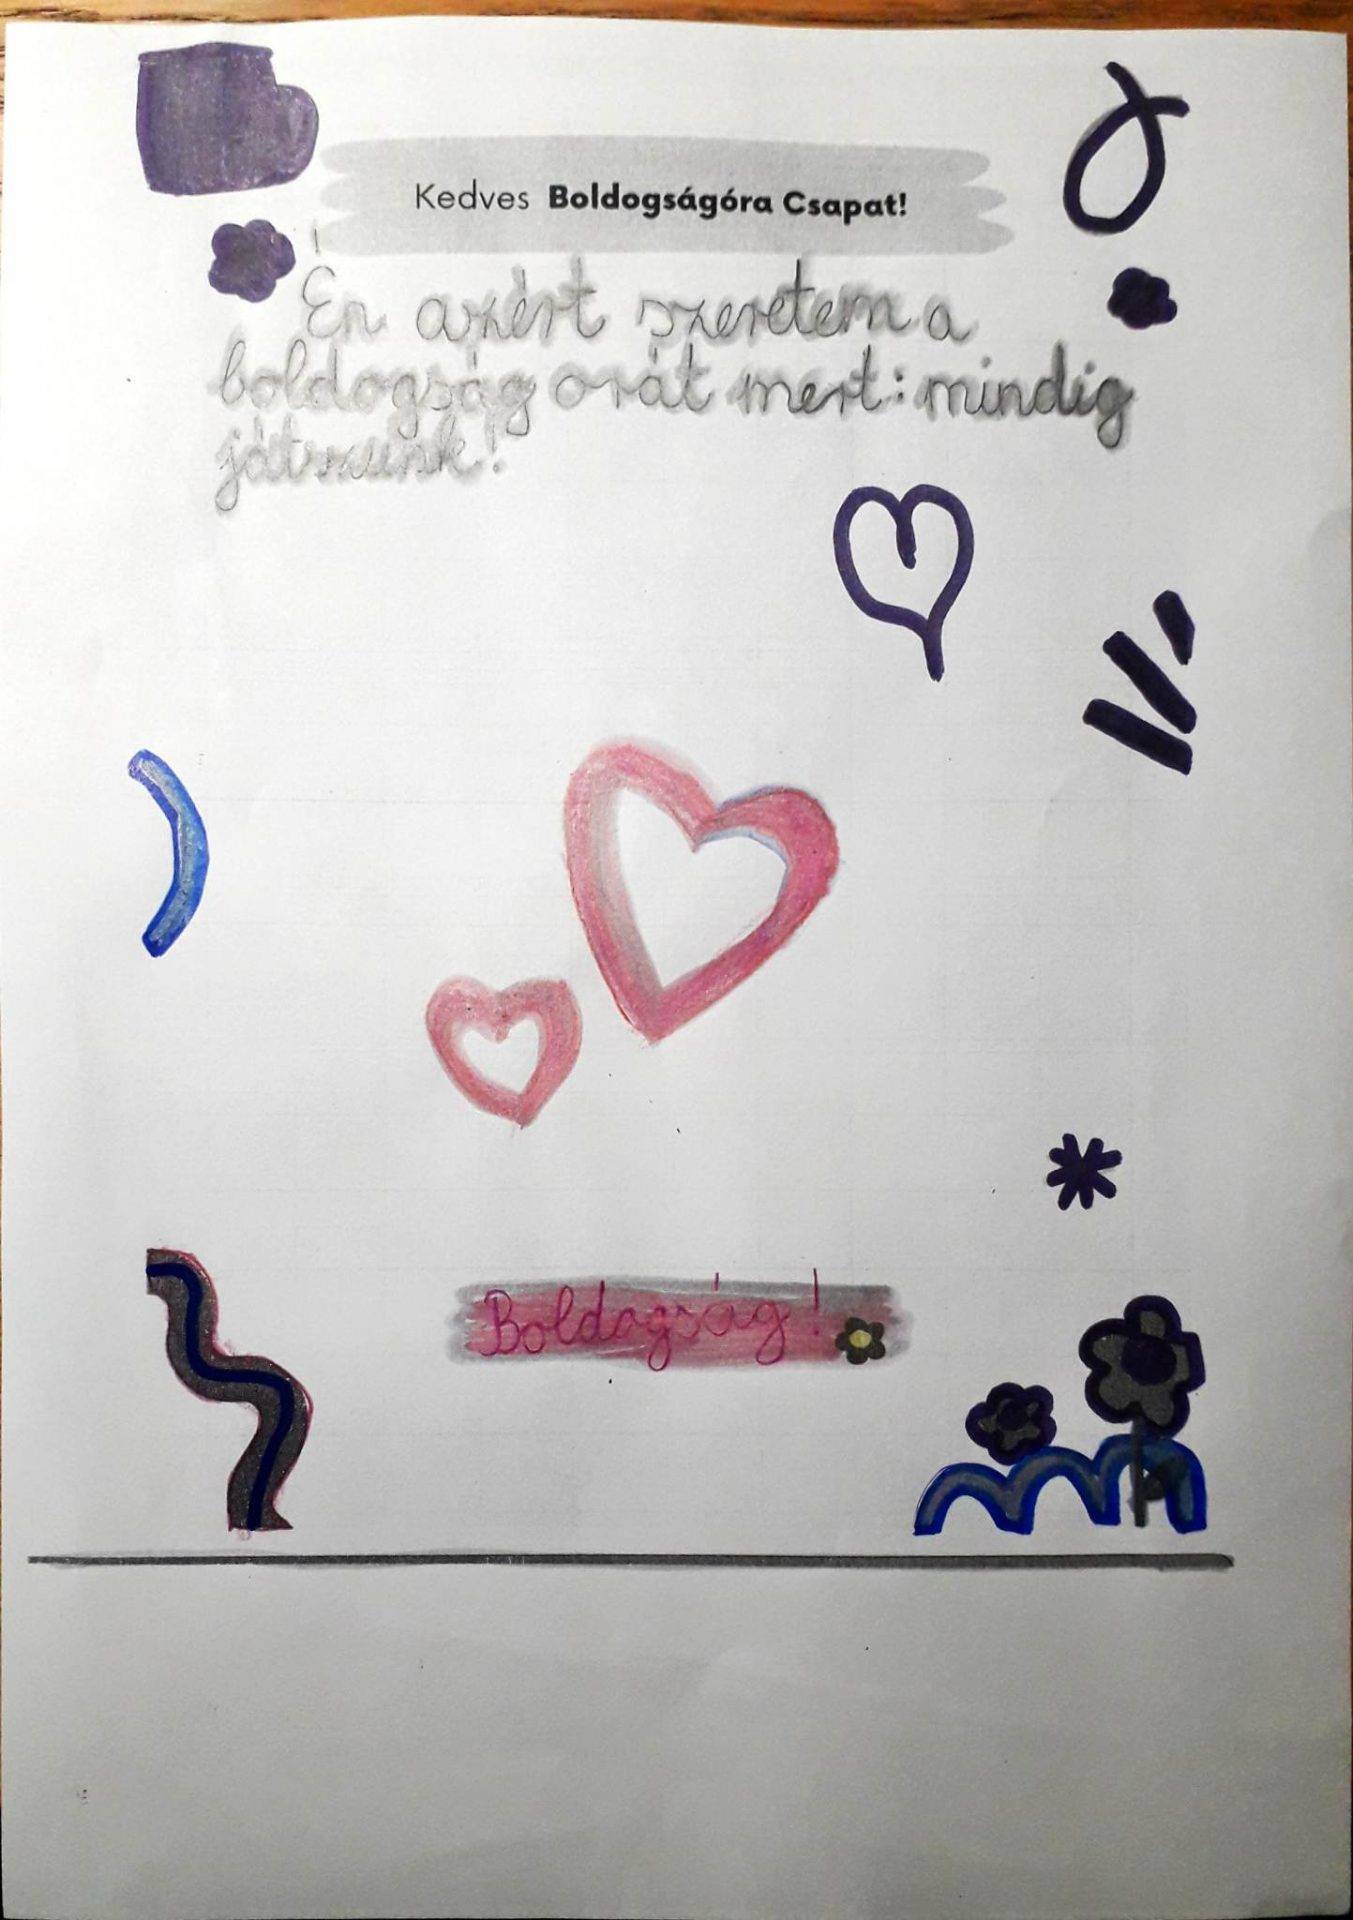 Kedves Boldogságóra Csapat!
Én azért szeretem a
boldogság orát mert: mindig
játszunk!
Boldogság!